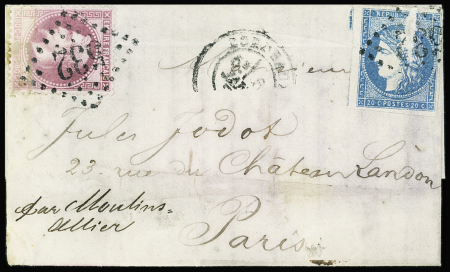 REPUB
20 C. POSTES 20 C.
Monsieur
Jules Jodot
23. rue du Château Landon
par Moulins.
Allier
Paris